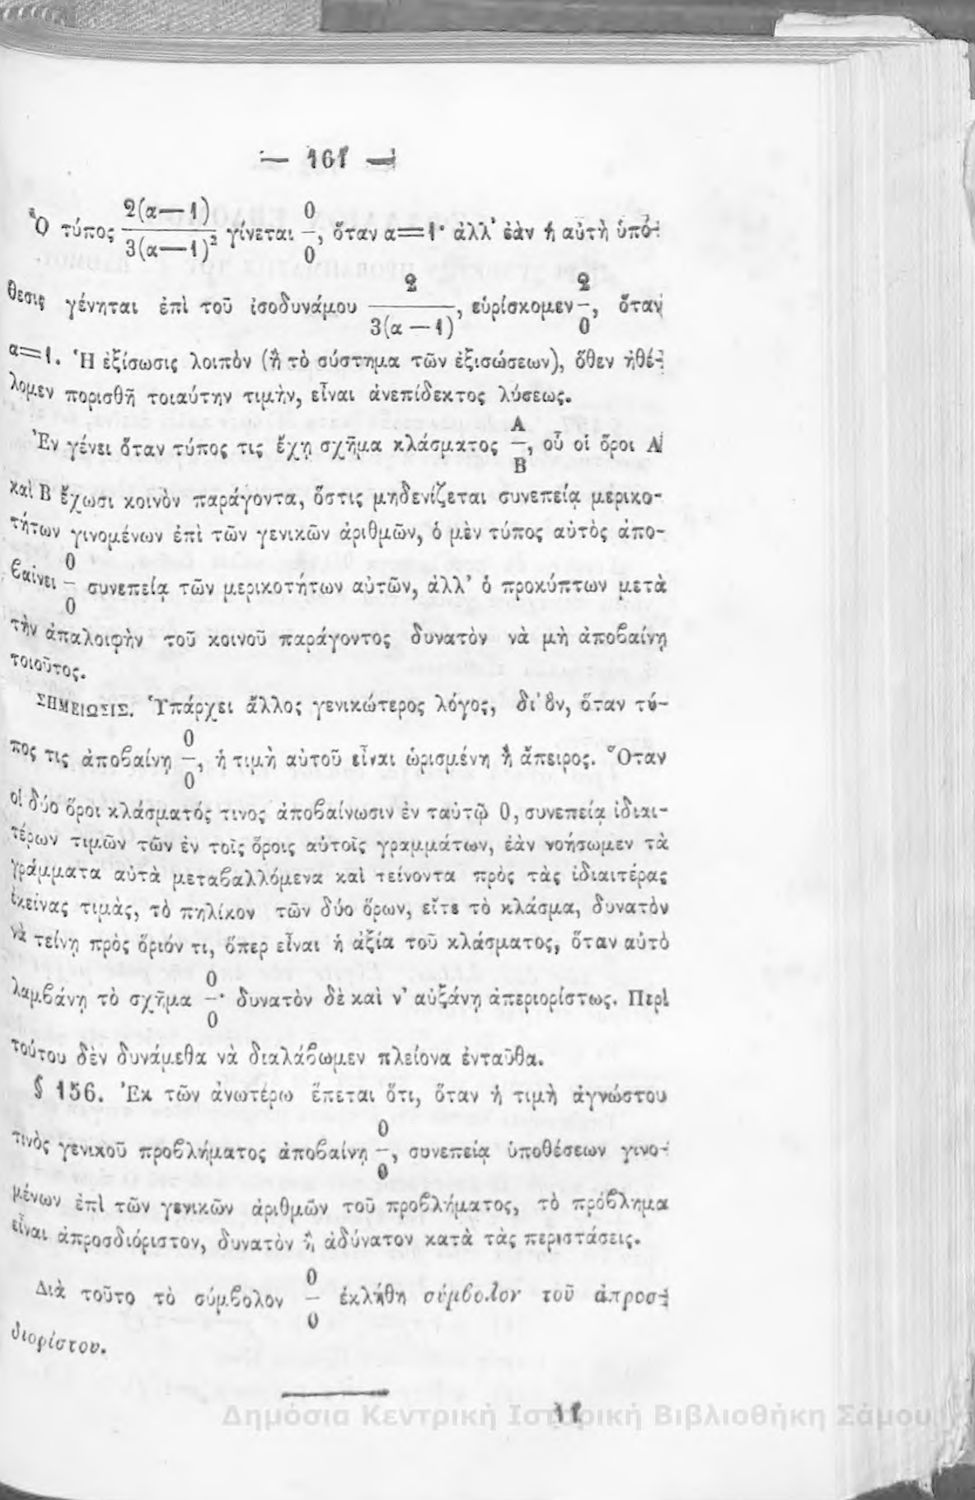 — 161 —
Ὁ τύπος 2(α—1)/3(α—1)² γίνεται 0/0, ὅταν α=1· ἀλλ' ἐὰν ἡ αὐτὴ ὑπό-
θεσις γένηται ἐπὶ τοῦ ἰσοδυνάμου 2/3(α—1), εὑρίσκομεν 2/0, ὅταν
α=1. Ἡ ἐξίσωσις λοιπὸν (ἢ τὸ σύστημα τῶν ἐξισώσεων), ὅθεν ἠθέ-
λομεν πορισθῆ τοιαύτην τιμὴν, εἶναι ἀνεπίδεκτος λύσεως.
Ἐν γένει ὅταν τύπος τις ἔχῃ σχῆμα κλάσματος Α/Β, οὗ οἱ ὅροι Α
καὶ Β ἔχωσι κοινὸν παράγοντα, ὅστις μηδενίζεται συνεπείᾳ μερικο-
τήτων γινομένων ἐπὶ τῶν γενικῶν ἀριθμῶν, ὁ μὲν τύπος αὐτὸς ἀπο-
βαίνει 0/0 συνεπείᾳ τῶν μερικοτήτων αὐτῶν, ἀλλ' ὁ προκύπτων μετὰ
τὴν ἀπαλοιφὴν τοῦ κοινοῦ παράγοντος δυνατὸν νὰ μὴ ἀποβαίνῃ
τοιοῦτος.
ΣΗΜΕΙΩΣΙΣ. Ὑπάρχει ἄλλος γενικώτερος λόγος, δι' ὃν, ὅταν τύ-
πος τις ἀποβαίνῃ 0/0, ἡ τιμὴ αὐτοῦ εἶναι ὡρισμένη ἢ ἄπειρος. Ὅταν
οἱ δύο ὅροι κλάσματός τινος ἀποβαίνωσιν ἐν ταὐτῷ 0, συνεπείᾳ ἰδιαι-
τέρων τιμῶν τῶν ἐν τοῖς ὅροις αὐτοῖς γραμμάτων, ἐὰν νοήσωμεν τὰ
γράμματα αὐτὰ μεταβαλλόμενα καὶ τείνοντα πρὸς τὰς ἰδιαιτέρας
ἐκείνας τιμὰς, τὸ πηλίκον τῶν δύο ὅρων, εἴτε τὸ κλάσμα, δυνατὸν
νὰ τείνῃ πρὸς ὅριόν τι, ὅπερ εἶναι ἡ ἀξία τοῦ κλάσματος, ὅταν αὐτὸ
λαμβάνῃ τὸ σχῆμα 0/0· δυνατὸν δὲ καὶ ν' αὐξάνῃ ἀπεριορίστως. Περὶ
τούτου δὲν δυνάμεθα νὰ διαλάβωμεν πλείονα ἐνταῦθα.
§ 156. Ἐκ τῶν ἀνωτέρω ἕπεται ὅτι, ὅταν ἡ τιμὴ ἀγνώστου
τινὸς γενικοῦ προβλήματος ἀποβαίνῃ 0/0, συνεπείᾳ ὑποθέσεων γινο-
μένων ἐπὶ τῶν γενικῶν ἀριθμῶν τοῦ προβλήματος, τὸ πρόβλημα
εἶναι ἀπροσδιόριστον, δυνατὸν ἢ ἀδύνατον κατὰ τὰς περιστάσεις.
Διὰ τοῦτο τὸ σύμβολον 0/0 ἐκλήθη σύμβολον τοῦ ἀπροσ-
διορίστου.
11
Δημόσια Κεντρική Ιστορική Βιβλιοθήκη Σάμου